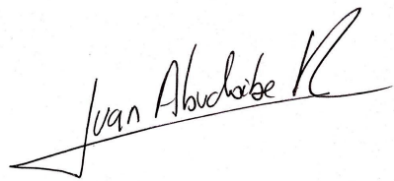 Juan Abuchaibe R